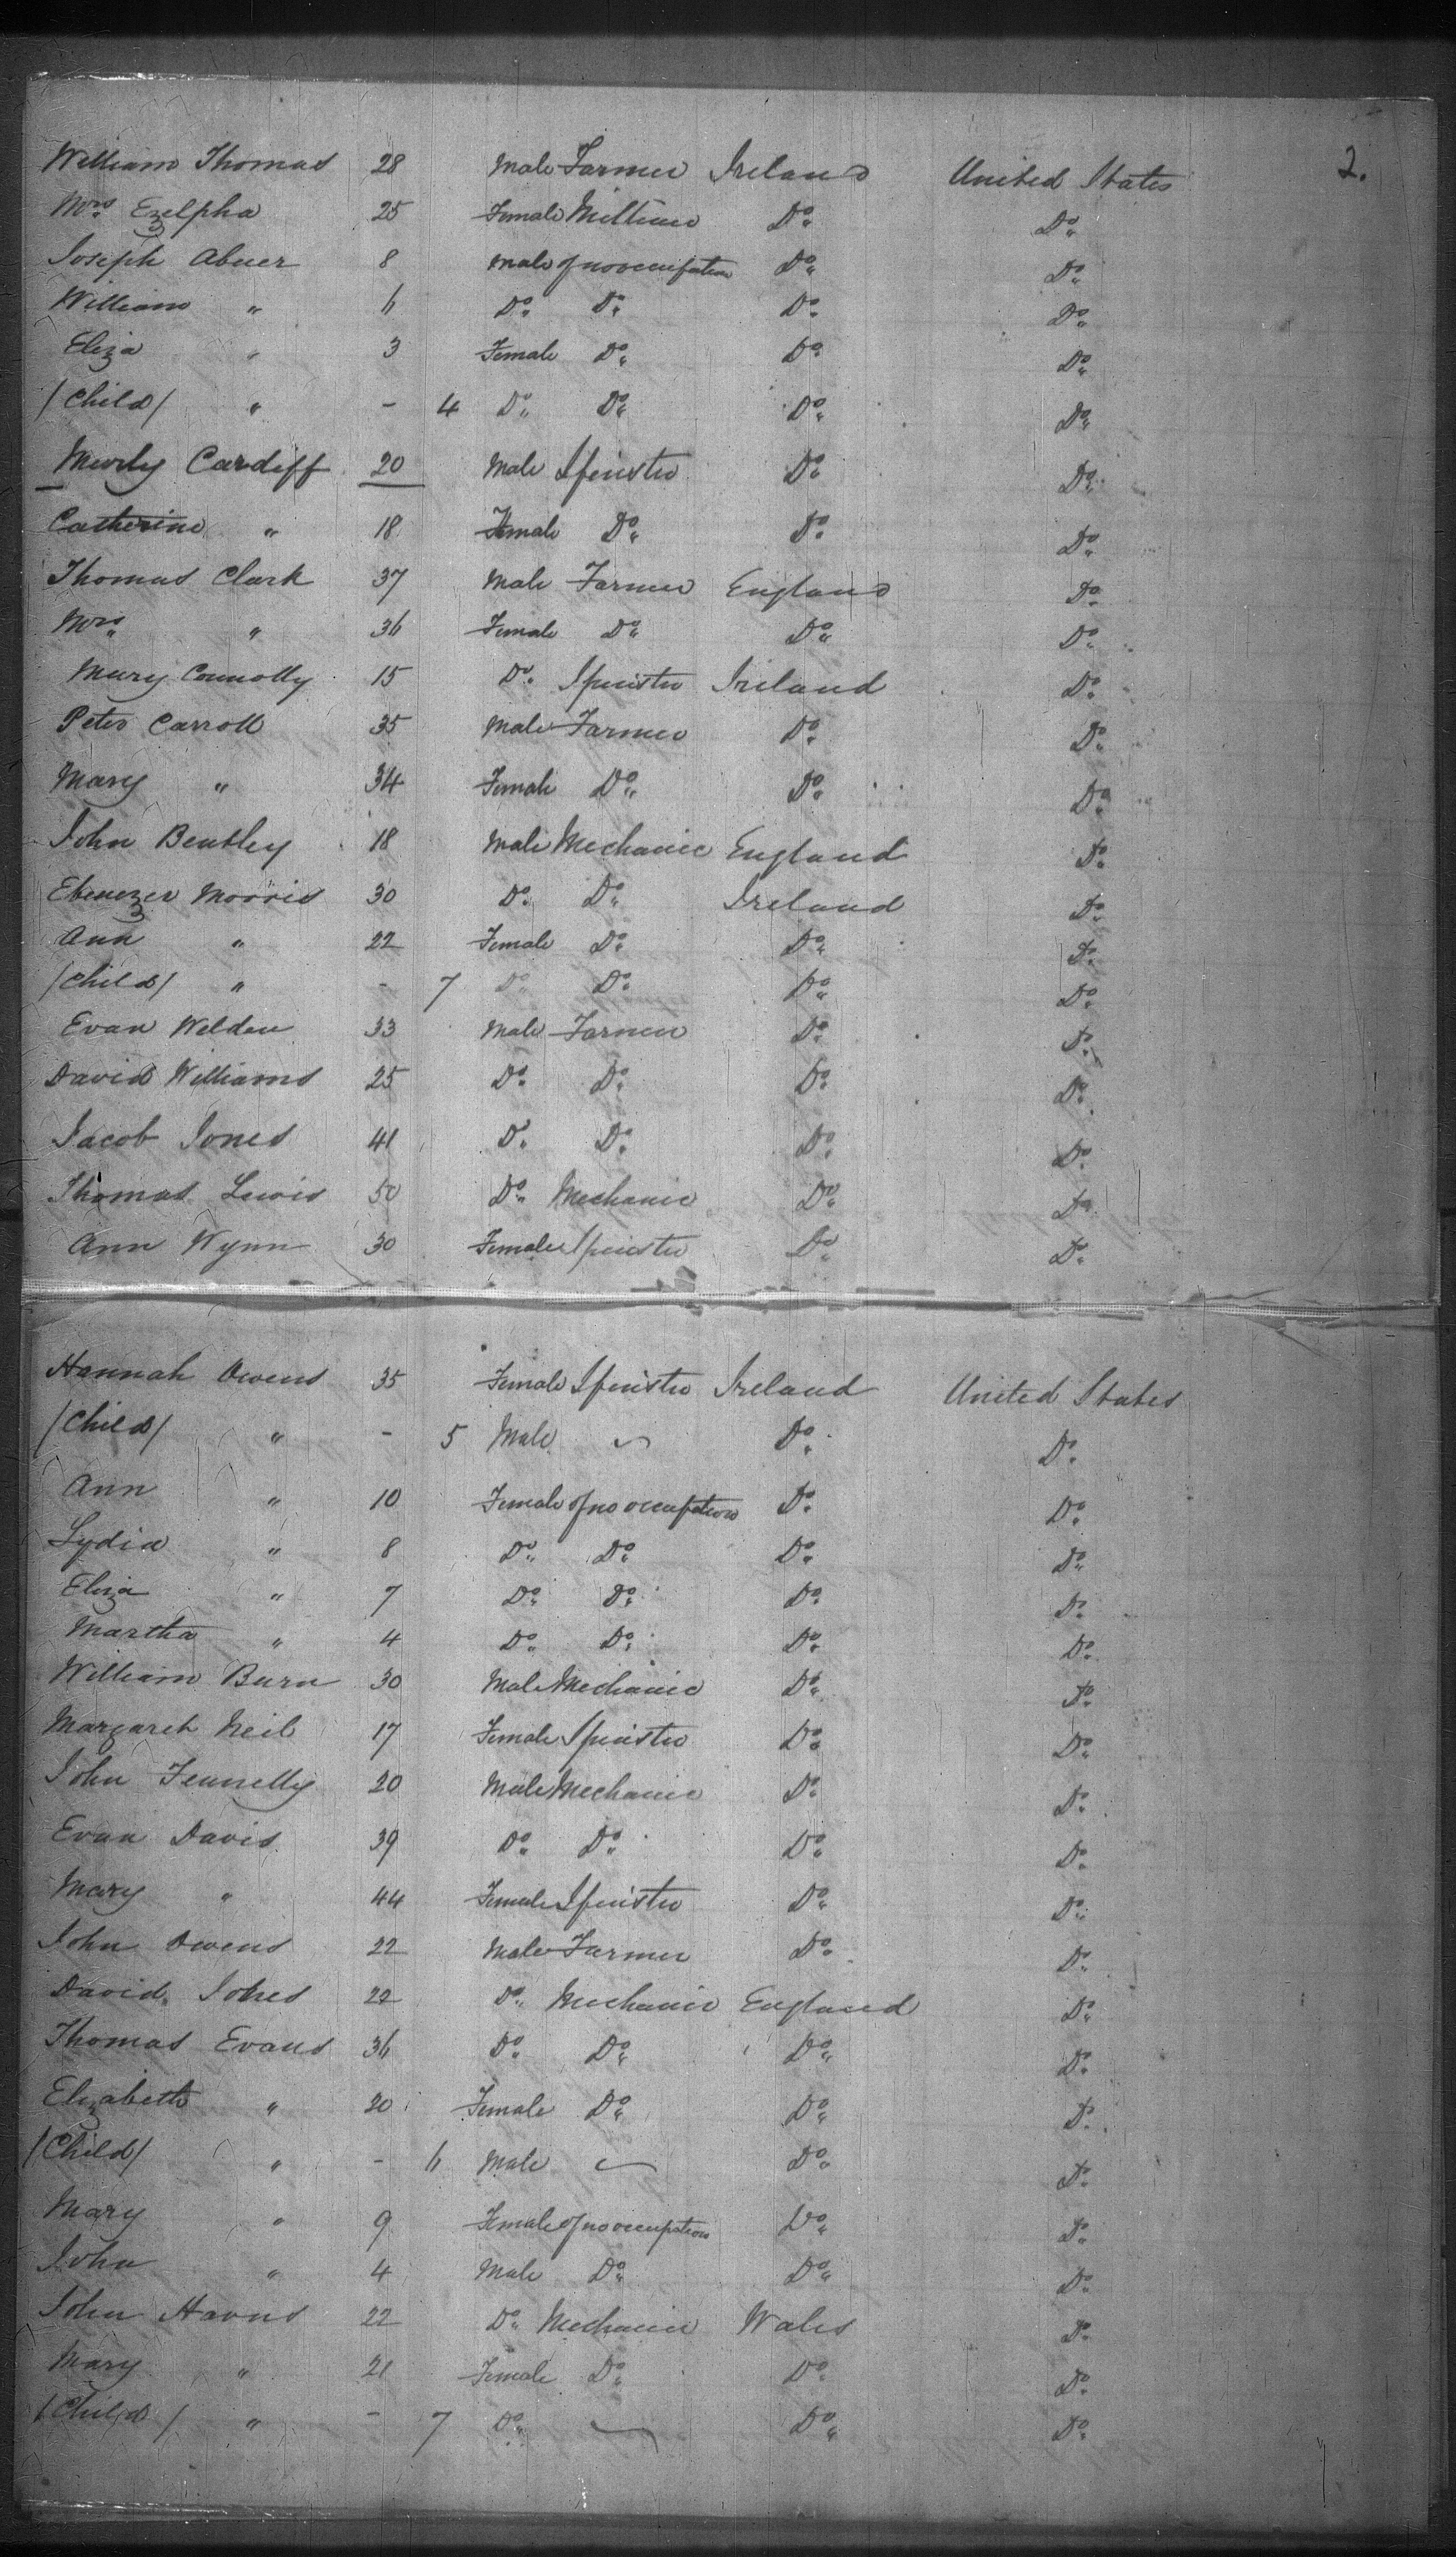 2.
William Thomas 28 Male Farmer Ireland United States
Mrs Ezelpha 25 Female Do Do
Joseph Abner 8 Male of no occupation Do Do
William " 6 Do Do Do Do
Eliza " 3 Female Do Do Do
/Child/ " - 4 Do Do Do Do
Cardiff 20 Male Spinster Do Do
Catherine " 18 Female Do Do Do
Thomas Clark 37 Male Farmer England Do
Mrs " 36 Female Do Do Do
Mary Connolly 15 Do Spinster Ireland Do
Peter Carroll 35 Male Farmer Do Do
Mary " 34 Female Do Do Do
John Bentley 18 Male Mechanic England Do
Ebenezer Morris 30 Do Do Ireland Do
Ann " 22 Female Do Do Do
/Child/ " - 7 Do Do Do Do
Evan Welden 33 Male Farmer Do Do
David Williams 25 Do Do Do Do
Jacob Jones 41 Do Do Do Do
Thomas Lewis 50 Do Mechanic Do Do
Ann Wynn 30 Female Spinster Do Do
Hannah Owens 35 Female Spinster Ireland United States
/Child/ " - 5 Male Do Do
Ann " 10 Female of no occupation Do Do
Lydia " 8 Do Do Do Do
Eliza " 7 Do Do Do Do
Martha " 4 Do Do Do Do
William Burn 30 Male Mechanic Do Do
Margaret Neil 17 Female Spinster Do Do
John Fennelly 20 Male Mechanic Do Do
Evan Davis 39 Do Do Do Do
Mary " 44 Female Spinster Do Do
John Owens 22 Male Farmer Do Do
David Jones 22 Do Mechanic England Do
Thomas Evans 36 Do Do Do Do
Elizabeth " 20 Female Do Do Do
/Child/ " - 6 Male Do Do
Mary " 9 Female of no occupation Do Do
John " 4 Male Do Do Do
John 22 Do Mechanic Wales Do
Mary " 21 Female Do Do Do
/Child/ " - 7 Do Do Do